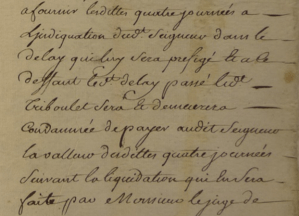 a fournir lesdittes quatre journées a
L'indiquation dud.t Seigneur dans le
delay qui luy sera prefigé et a
deffaut led.t delay passé led.t
triboulet sera et demeurera
Condamnée de payer audit Seigneur
la valleur desdittes quatre journées
suivant la liquidation qui en sera
faitte par Monsieur le juge de